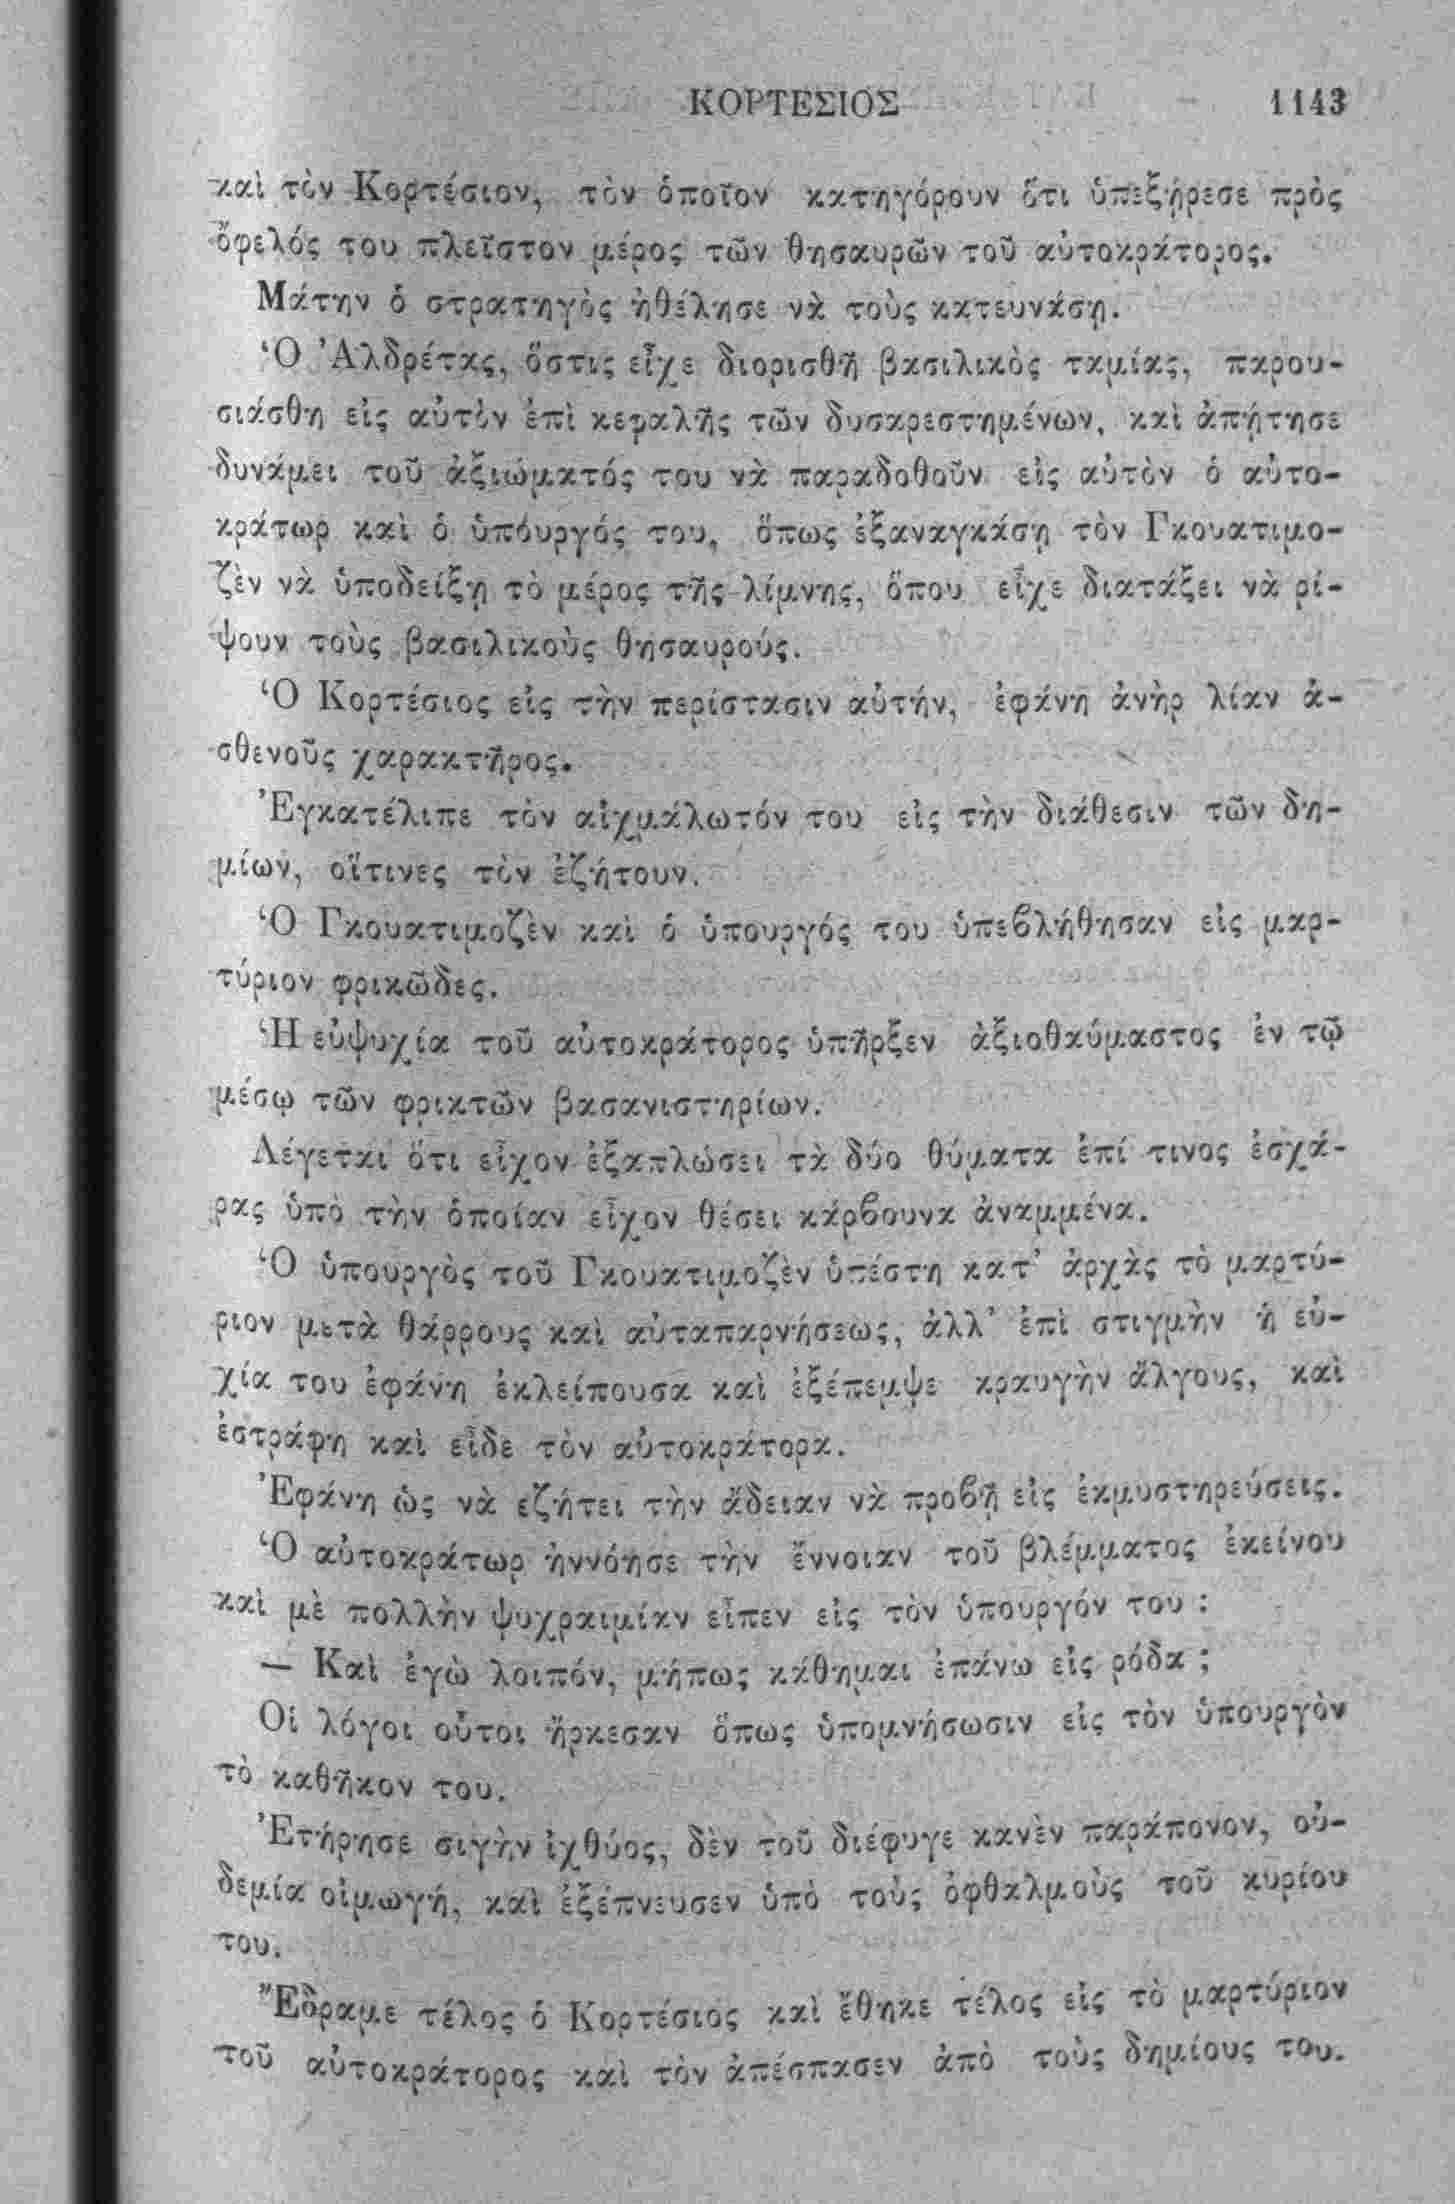 ΚΟΡΤΕΣΙΟΣ 1143
καὶ τὸν Κορτέσιον, τὸν ὁποῖον κατηγόρουν ὅτι ὑπεξῄρεσε πρὸς
ὄφελός του πλεῖστον μέρος τῶν θησαυρῶν τοῦ αὐτοκράτορος.
Μάτην ὁ στρατηγὸς ἠθέλησε νὰ τοὺς κατευνάσῃ.
Ὁ Ἀλδρέτας, ὅστις εἶχε διορισθῆ βασιλικὸς ταμίας, παρου-
σιάσθη εἰς αὐτὸν ἐπὶ κεφαλῆς τῶν δυσαρεστημένων, καὶ ἀπῄτησε
δυνάμει τοῦ ἀξιώματός του νὰ παραδοθοῦν εἰς αὐτὸν ὁ αὐτο-
κράτωρ καὶ ὁ ὑπόυργός του, ὅπως ἐξαναγκάσῃ τὸν Γκουατιμο-
ζὲν νὰ ὑποδείξῃ τὸ μέρος τῆς λίμνης, ὅπου εἶχε διατάξει νὰ ρί-
ψουν τοὺς βασιλικοὺς θησαυρούς.
Ὁ Κορτέσιος εἰς τὴν περίστασιν αὐτήν, ἐφάνη ἀνὴρ λίαν ἀ-
σθενοῦς χαρακτῆρος.
Ἐγκατέλιπε τὸν αἰχμάλωτόν του εἰς τὴν διάθεσιν τῶν δη-
μίων, οἵτινες τὸν ἐζήτουν.
Ὁ Γκουατιμοζὲν καὶ ὁ ὑπουργός του ὑπεβλήθησαν εἰς μαρ-
τύριον φρικῶδες.
Ἡ εὐψυχία τοῦ αὐτοκράτορος ὑπῆρξεν ἀξιοθαύμαστος ἐν τῷ
μέσῳ τῶν φρικτῶν βασανιστηρίων.
Λέγεται ὅτι εἶχον ἐξαπλώσει τὰ δύο θύματα ἐπί τινος ἐσχά-
ρας ὑπὸ τὴν ὁποίαν εἶχον θέσει κάρβουνα ἀναμμένα.
Ὁ ὑπουργὸς τοῦ Γκουατιμοζὲν ὑπέστη κατ’ ἀρχὰς τὸ μαρτύ-
ριον μετὰ θάρρους καὶ αὐταπαρνήσεως, ἀλλ’ ἐπὶ στιγμὴν ἡ εὐ-
χία του ἐφάνη ἐκλείπουσα καὶ ἐξέπεμψε κραυγὴν ἄλγους, καὶ
ἐστράφη καὶ εἶδε τὸν αὐτοκράτορα.
Ἐφάνη ὡς νὰ εζήτει τὴν ἄδειαν νὰ προβῇ εἰς ἐκμυστηρεύσεις.
Ὁ αὐτοκράτωρ ἠννόησε τὴν ἔννοιαν τοῦ βλέμματος ἐκείνου
καὶ μὲ πολλὴν ψυχραιμίαν εἶπεν εἰς τὸν ὑπουργόν του :
— Καὶ ἐγὼ λοιπόν, μήπως κάθημαι ἐπάνω εἰς ρόδα ;
Οἱ λόγοι οὗτοι ἤρκεσαν ὅπως ὑπομνήσωσιν εἰς τὸν ὑπουργὸν
τὸ καθῆκον του.
Ἐτήρησε σιγὴν ἰχθύος, δὲν τοῦ διέφυγε κανὲν παράπονον, οὐ-
δεμία οἰμωγή, καὶ ἐξέπνευσεν ὑπὸ τοὺς ὀφθαλμοὺς τοῦ κυρίου
του.
Ἔδραμε τέλος ὁ Κορτέσιος καὶ ἔθηκε τέλος εἰς τὸ μαρτύριον
τοῦ αὐτοκράτορος καὶ τὸν ἀπέσπασεν ἀπὸ τοὺς δημίους του.